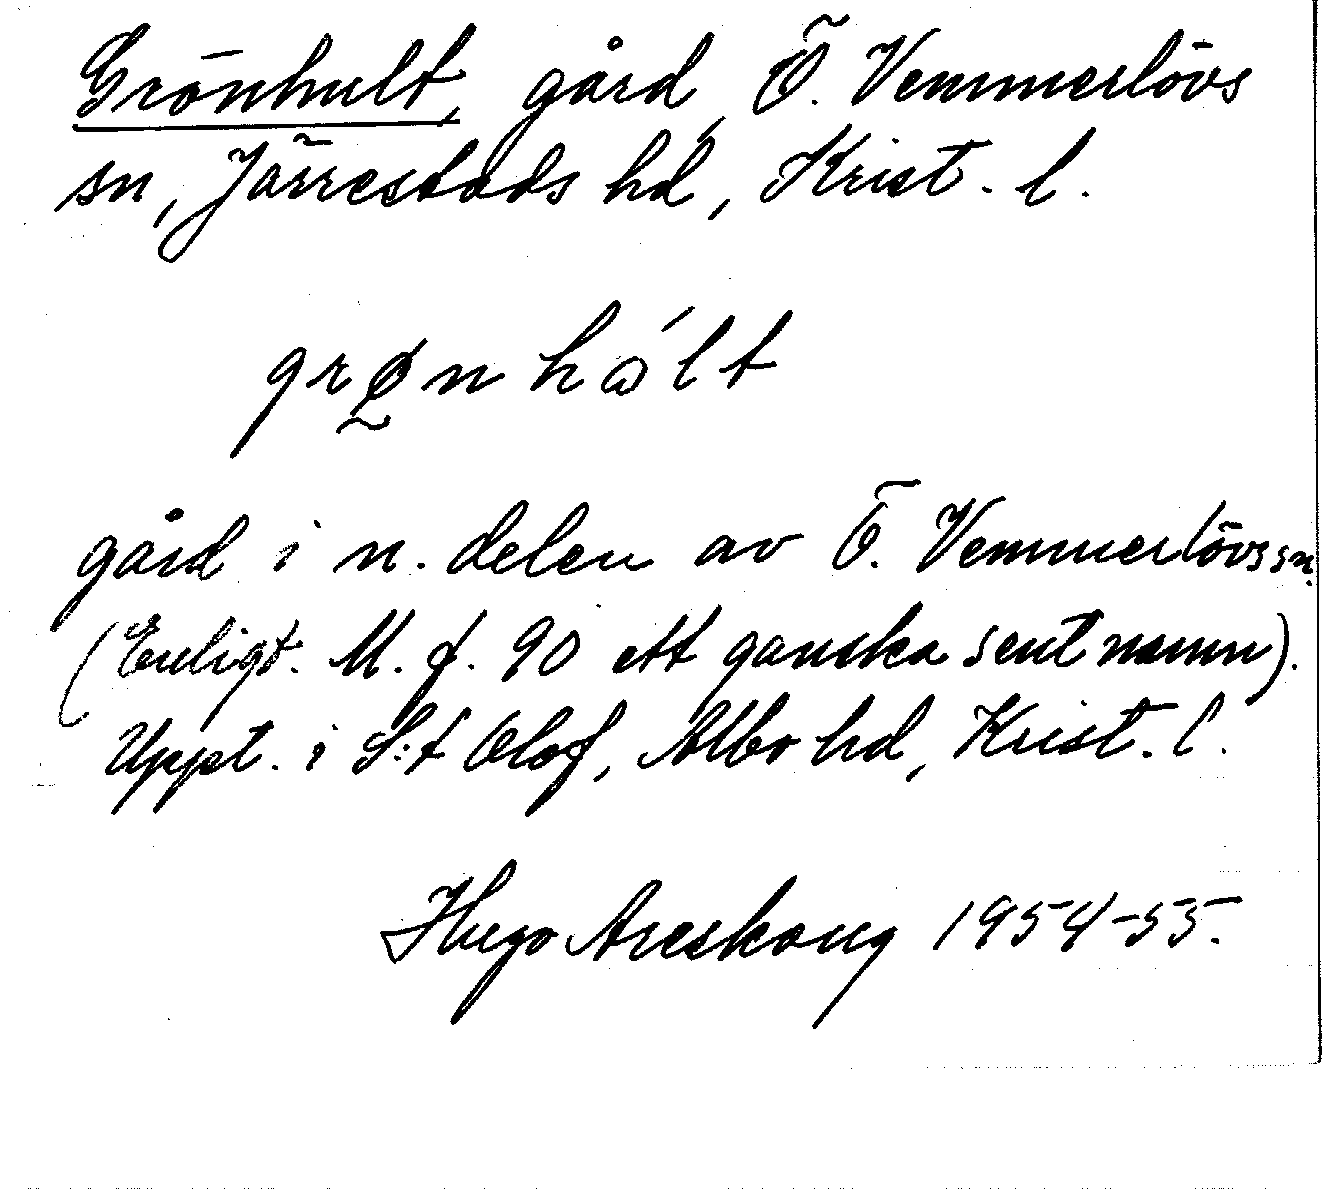 Grönhult, gård, Ö. Vemmerlövs
sn, Järrestads hd, Krist. l.
grø̰nhɷ́lt
gård i n. delen av Ö. Vemmerlövs sn.
(Enligt. M. f. 90 ett ganska sent namn).
Uppt. i S:t Olof, Albo hd, Krist. l.
Hugo Areskoug 1954-55.